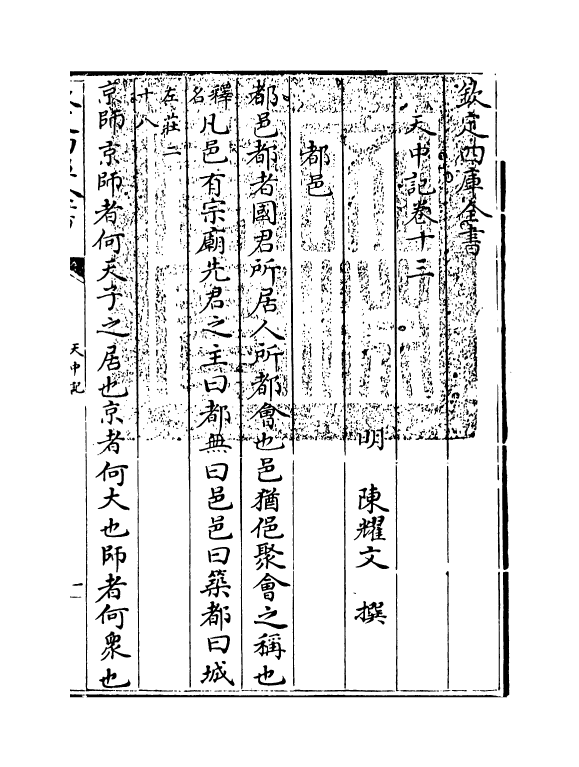 欽定四庫全書
天中記卷十三
明 陳耀文 撰
都邑
都邑都者國君所居人所都會也邑猶俋聚會之稱也
釋名
凡邑有宗廟先君之主曰都無曰邑邑曰築都曰城
左莊二十八
京師京師者何天子之居也京者何大也師者何衆也
天中記
一